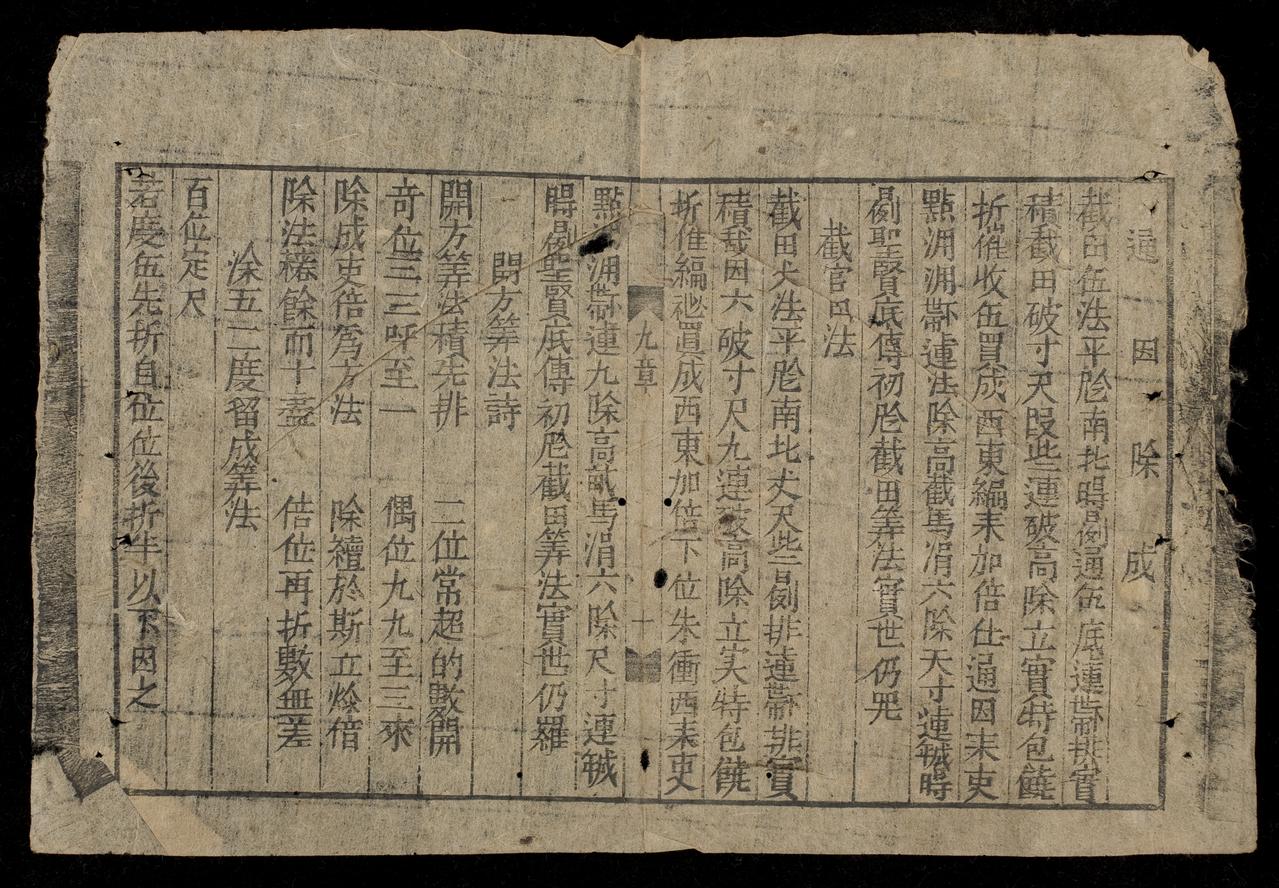 通因除成
截田伍法平𠫾南北𣇞𠋥通伍底連帶排實
積截田破寸尺段些連破高除立實特包饒
折催收伍買成西東編末加倍仕通因末吏
點泖泖帶連法除高截馬涓六除天寸連𨧟時
𠋥聖賢底傳初𠫾截田等法實世仍咒
截官田法
截田大法平𠫾南北丈尺些𠋥排連帶排實
積哉因六破寸尺九連破高除立实特包饒
折催編買成西東加倍下位朱衝西末吏
九章
十
點泖帶連九除高畝馬涓六除尺寸連𨧟
𣇞𠋥聖賢底傳初𠫾截田等法實世仍羅
開方等法詩
開方等法積先排 二位常超的數開
奇位三三呼至一 偶位九九至三來
除成吏倍爲方法 除積於斯立倍
除法餘而十盡 倍位再折數無差
五二度留成等法
百位定尺
若度伍先折自位位後折半以下因之